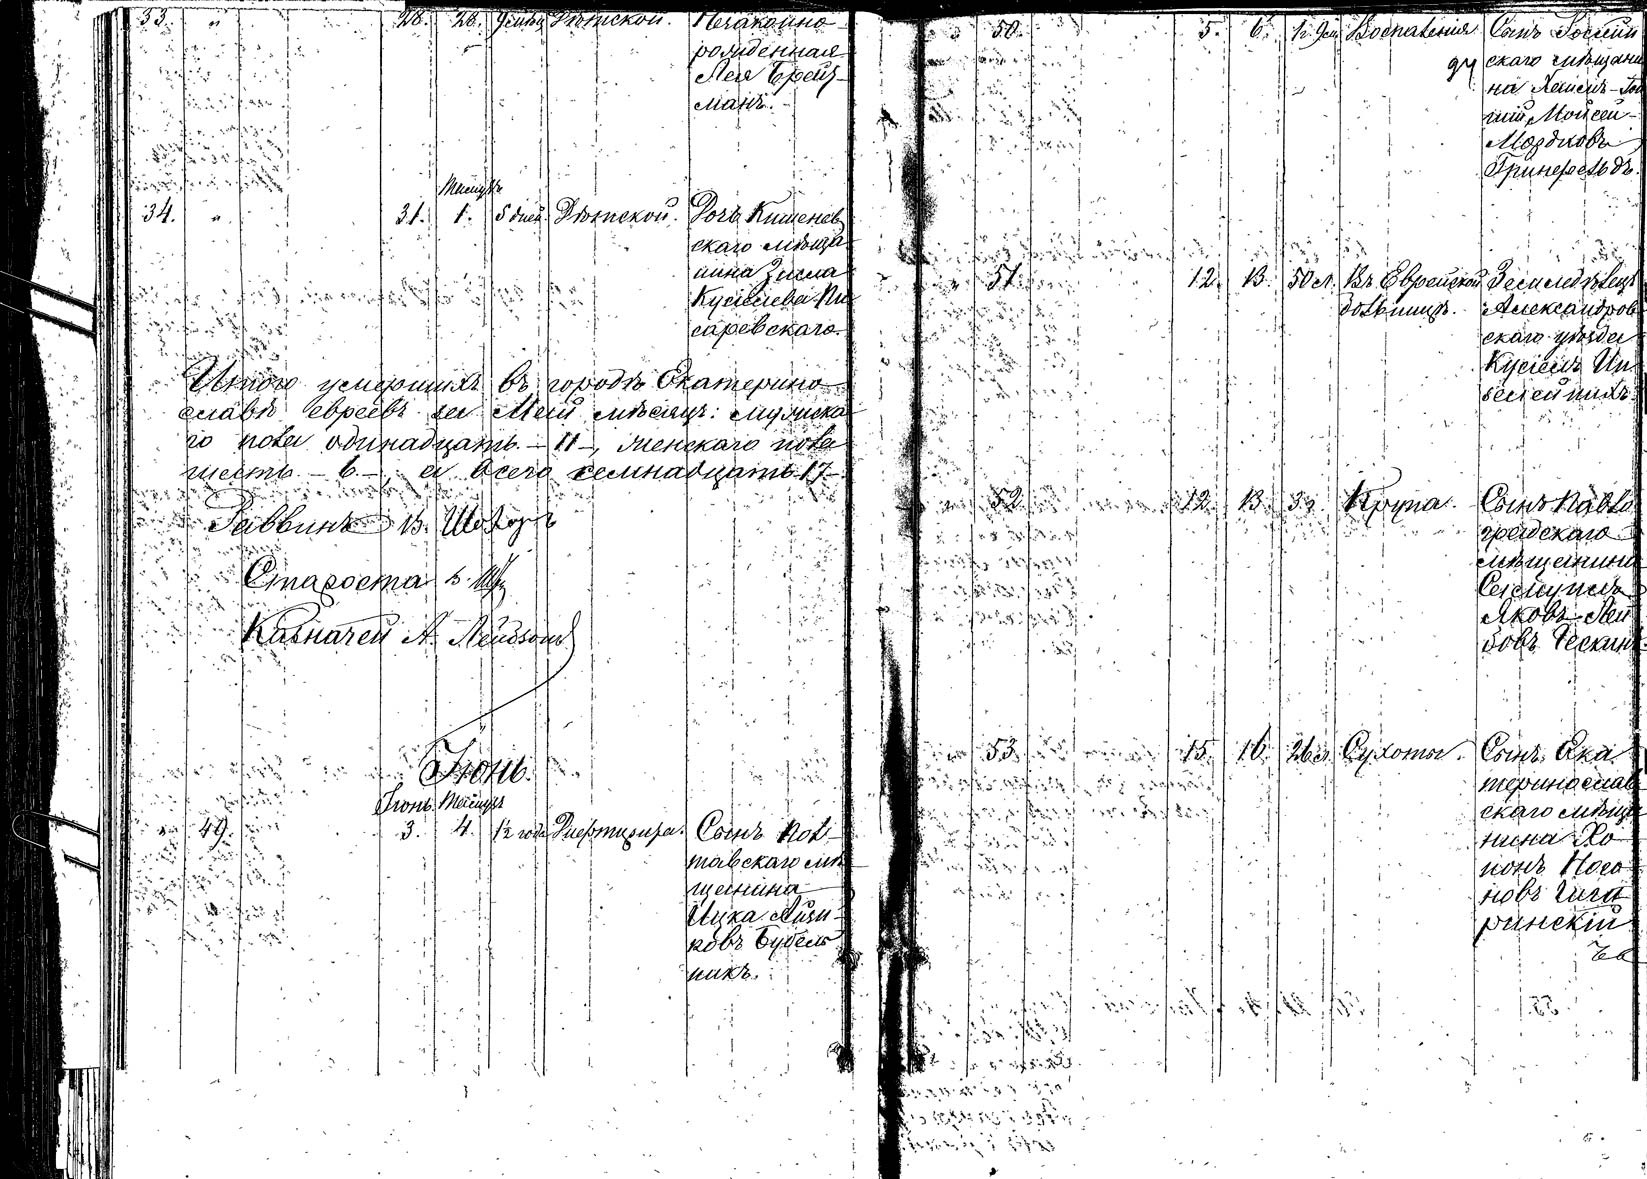 33. „ 28. 28. Дѣтской. Незаконно
рожденная
Лея Брейт-
манъ.
Тамузъ
34. „ 31. 1. 5 дней. Дѣтской. Дочь Кишенев
скаго мѣща
нина Зисла
Кусіелева Пи
саревскаго.
Итого умершихъ въ городѣ Екатерино
славѣ евреевъ за Май мѣсяцъ: мужска
го пола одинадцать – 11 –, женскаго пола
шесть – 6 –, а всего семнадцать 17 –
Раввинъ В. Шохоръ
Староста
Казначей А. Лейбзонъ
Іюнь.
Іюнь. Тамузъ
49. 3. 4. 1½ года Дифтирита. Сынъ Пол-
тавскаго мѣ
щанина
Ицка Айзи-
ковъ Будель
никъ.
50. 5. 6. Воспаленія Сынъ
скаго мѣщани
на
Мойсей
Мордковъ
Гринфельдъ.
51. 12. 13. 50 л. Въ Еврейской Земледѣлецъ
больницѣ. Александров
скаго уѣзда
Кусіелъ
52. 12. 13. 3 г. Крупа. Сынъ Павло
градскаго
мѣщанина
Самуилъ
Яковъ Лей
бовъ Ческинъ.
53. 15. 16. 26 л. Сухоты. Сынъ Ека
теринослав
скаго мѣща
нина Хо
нонъ Носо
новъ Чиги
ринскій